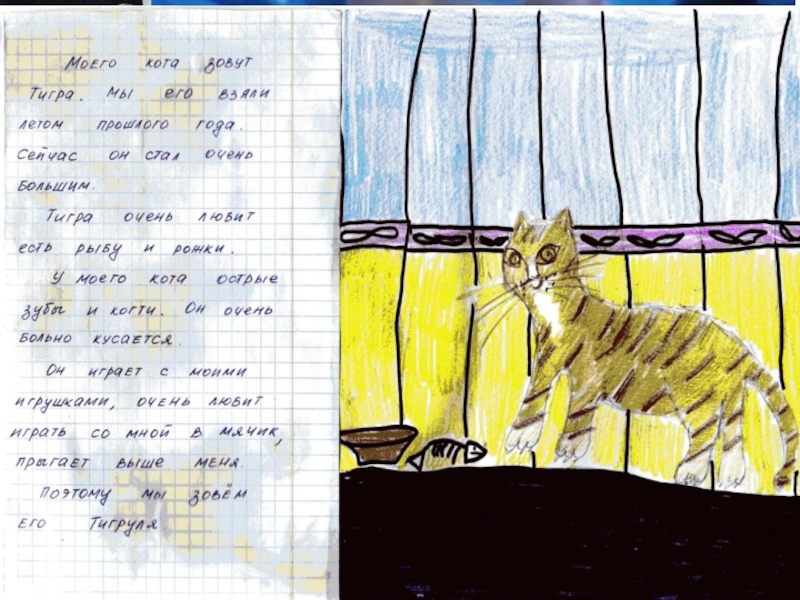 Моего кота зовут
Тигра. Мы его взяли
летом прошлого года.
Сейчас он стал очень
большим.
Тигра очень любит
есть рыбу и рожки.
У моего кота острые
зубы и когти. Он очень
больно кусается.
Он играет с моими
игрушками, очень любит
играть со мной в мячик,
прыгает выше меня.
Поэтому мы зовём
его Тигруля